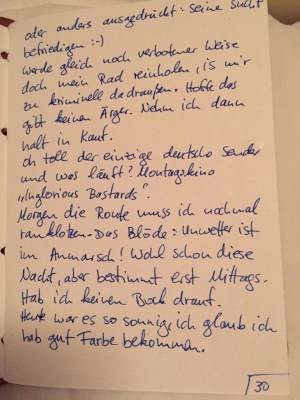 oder anders ausgedrückt: seine Sucht
befriedigen :-)
Werde gleich noch verbotener Weise
doch mein Rad reinholen, is mir
zu kriminell da draußen. Hoffe das
gibt keinen Ärger. Nehm ich dann
halt in Kauf.
ch toll der einzige deutsche Sender
und was läuft? Montagskino
„Inglorious Bastards".
Morgen die Route muss ich nochmal
ranklotzen - Das Blöde: Unwetter ist
im Anmarsch! Wohl schon diese
Nacht, aber bestimmt erst Mittags.
Hab ich keinen Bock drauf.
Heute war es so sonnig, ich glaub ich
hab gut Farbe bekommen.
30